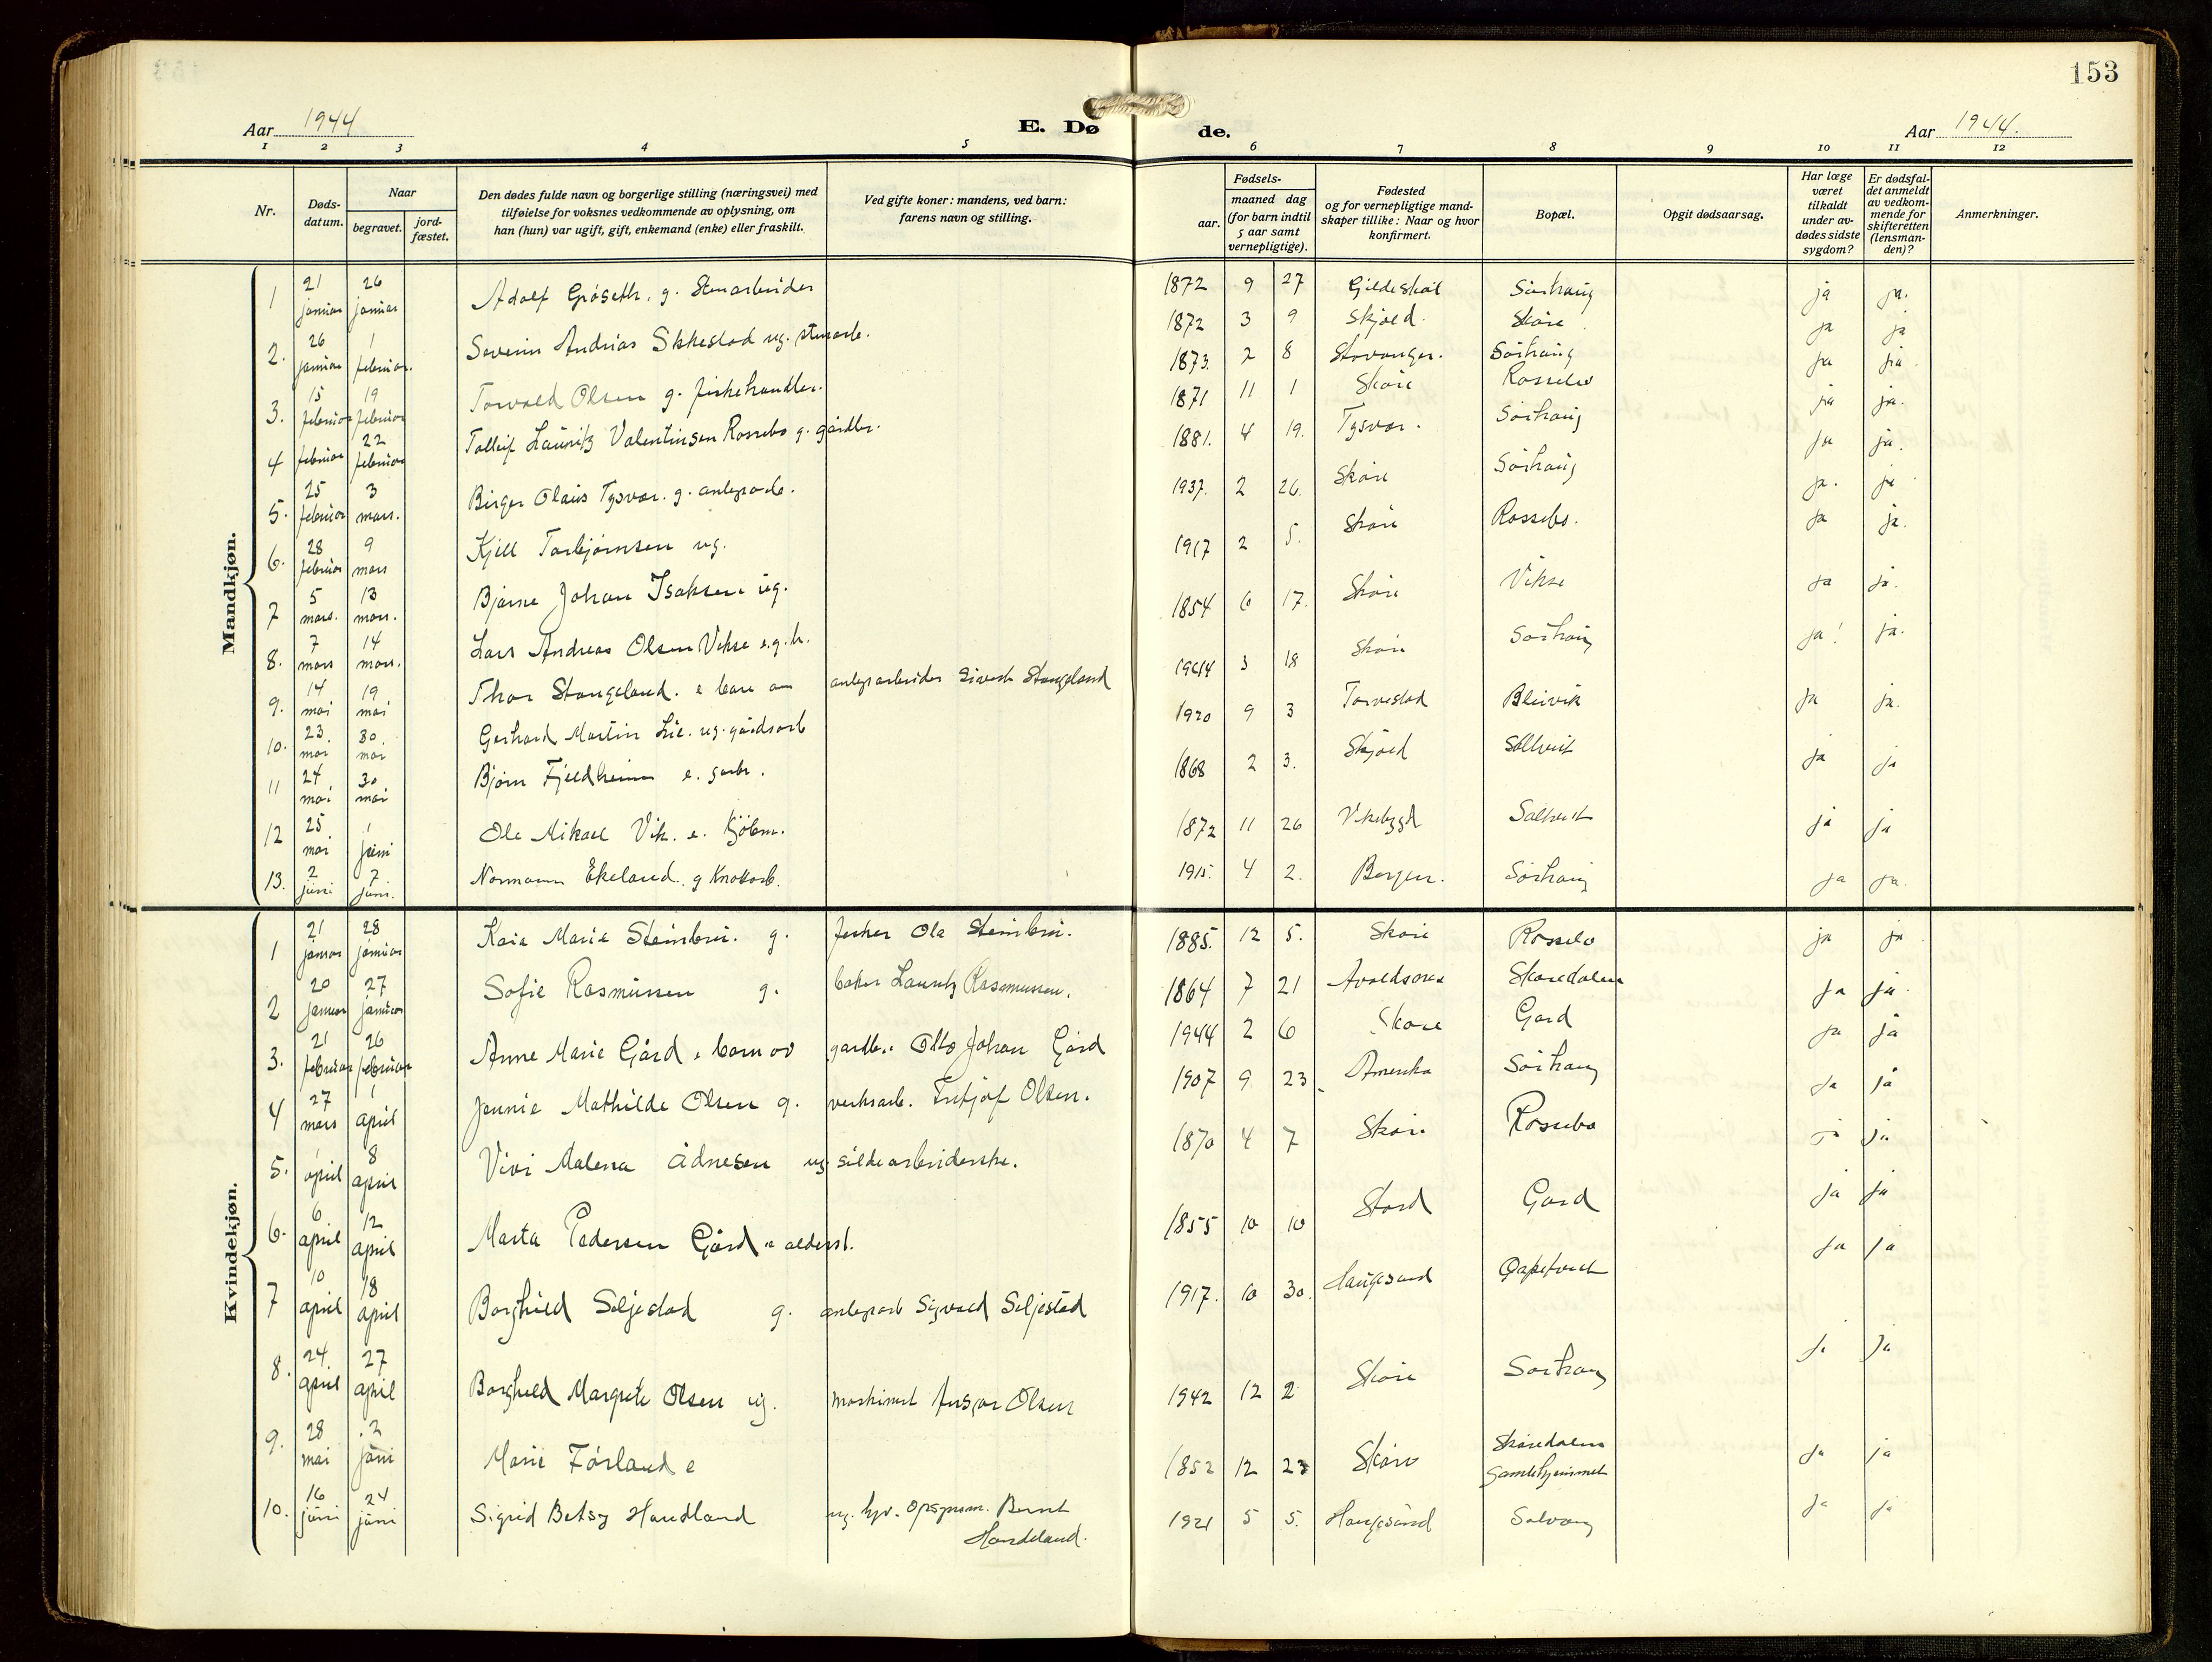 153
Aar 1944
E. Døde.
Aar 1944.
1 2 3 4 5 6 7 8 9 10 11 12
Nr.
Døds-datum.
Naar
begravet.
jord-fæstet.
Den dødes fulde navn og borgerlige stilling (næringsvei) med tilføielse for voksnes vedkommende av oplysning, om han (hun) var ugift, gift, enkemand (enke) eller fraskilt.
Ved gifte koner: mandens, ved barn: farens navn og stilling.
Fødsels-
aar.
maaned dag
(for barn indtil 5 aar samt vernepligtige).
Fødested og for vernepligtige mandskaper tillike: Naar og hvor konfirmert.
Bopæl.
Opgit dødsaarsag.
Har læge været tilkaldt under avdødes sidste sygdom?
Er dødsfaldet anmeldt av vedkommende for skifteretten (lensmanden)?
Anmerkninger.
Mandkjøn.
1 21 januar 26 januar Adolf Grøseth, g. Stenarbeider 1872 9 27 Gildeskål Sørhaug ja ja.
2. 26 januar 1 februar. Severin Andrias Skkestad ug. stenarb. 1872 3 9 Skjold. Skåre ja ja
3. 15 februar 19 februar Torvald Olsen g. fiskehandler. 1873. 2 8 Stavanger. Sørhaug ja ja.
4 februar 22 februar Tolleif Lauritz Valentinsen Rossebø g. gårdbr. 1871 11 1 Skåre Rossebø ja ja.
5. 25 februar 3 mars. Birger Olaus Tysvær. g. anlegsarb. 1881. 4 19. Tysvær. Sørhaug ja ja.
6. 28 februar 9 mars Kjell Torbjørnsen ug. 1937. 2 26. Skåre Sørhaug ja. ja
7 5 mars. 13 mars. Bjarne Johan Isaksen ug. 1917 2 5. Skåre Rossebø. ja ja.
8. 7 mars 14 mars. Lars Andreas Olsen Vikse e.g.h. 1854 6 17. Skåre Vikse ja ja.
9. 14 mai 19 mai Thor Stangeland. e barn av anlegsarbeider Sivert Stangeland 1944 3 18 Skåre Sørhaug ja! ja.
10. 23. mai 30. mai Gerhard Martin Lie. ug. gårdsarb 1920 9 3 Torvestad Bleivik ja ja.
11 24 mai 30 mai Bjørn Fjeldheim e. garb. 1868 2 3. Skjold Solhveit ja ja
12 25 mai 1 juni Ole Mikael Vik. e. kjøbm. 1872 11 26 Vikebygd Salhveit ja ja
13. 2 juni 7 juni. Normann Ekeland. g 1915. 4 2. Bergen. Sørhaug ja ja.
Kvindekjøn.
1 21 januar 28 januar Kaia Marie Steinbru. g. fisker Ola Steinbru. 1885. 12 5. Skåre Rossebø ja ja
2 20 januar 27 januar Sofie Rasmussen g. baker Lauritz Rasmussen. 1864 7 21 Avaldsnes Skåredalen ja ja.
3. 21 februar 26 februar Anne Marie Gård e barn av gardbr. Otto Johan Gård 1944 2 6 Skåre Gard ja ja
4 27 mars 1 april Jennie Mathilde Olsen g. verksarb. Fritjof Olsen. 1907 9 23 Amerika Sørhaug ja ja
5. 1 april 8 april Vivi Malena Ådnesen ug sildearbeiderske. 1870 4 7 Skåre Rossebø ja ja
6. 6 april 12 april Marta Pedersen Gård e alderst. 1855 10 10 Stord Gard ja ja
7 10 april 18 april Borghild Seljestad g. anlegsarb Sigvald Seljestad 1917. 10 30. Haugesund ja ja
8. 24. april 27 april Borghild Margrete Olsen ug. maskinist Ansgar Olsen 1942 12 2 Skåre Sørhaug ja ja
9. 28 mai 2 juni Marie Førland e 1852 12 23 Skåre Skåredalen Gamlehjemmet ja ja
10. 16 juni 24 juni Sigrid Betsy Handland ug. Bernt Handeland. 1921 5 5. Haugesund Solvang ja ja